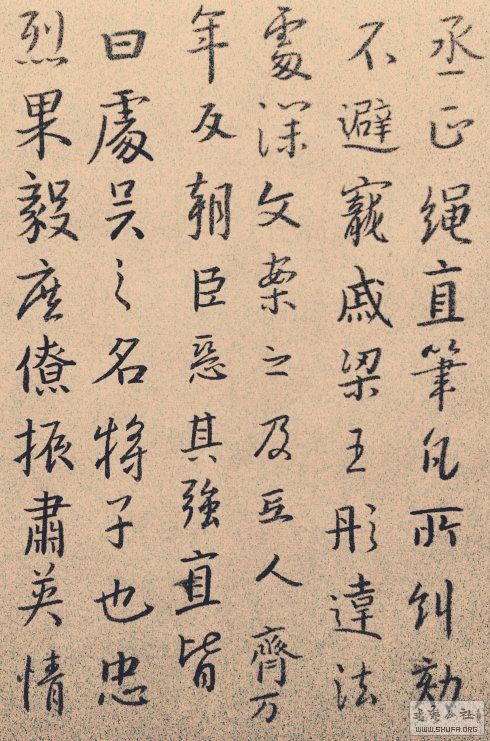 丞正绳直筆凡所糾劾
不避寵戚梁王彤違法
處深文案之及互人齊万
年反朝臣惡其強直皆
曰處吴之名將子也忠
烈果毅庶僚振肅英情
WWW.SHUFA.ORG